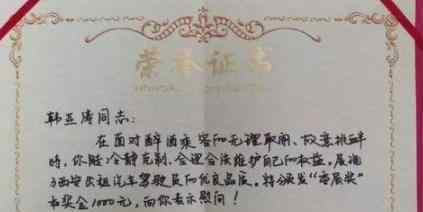 荣誉证书
韩亚涛同志:
在面对醉酒乘客的无理取闹、故意挑衅
时,你能冷静克制,合理合法维护自己的权益,展现
了西安出租汽车驾驶员的优良品质。特颁发“委屈奖”
和奖金1000元,向你表示慰问!